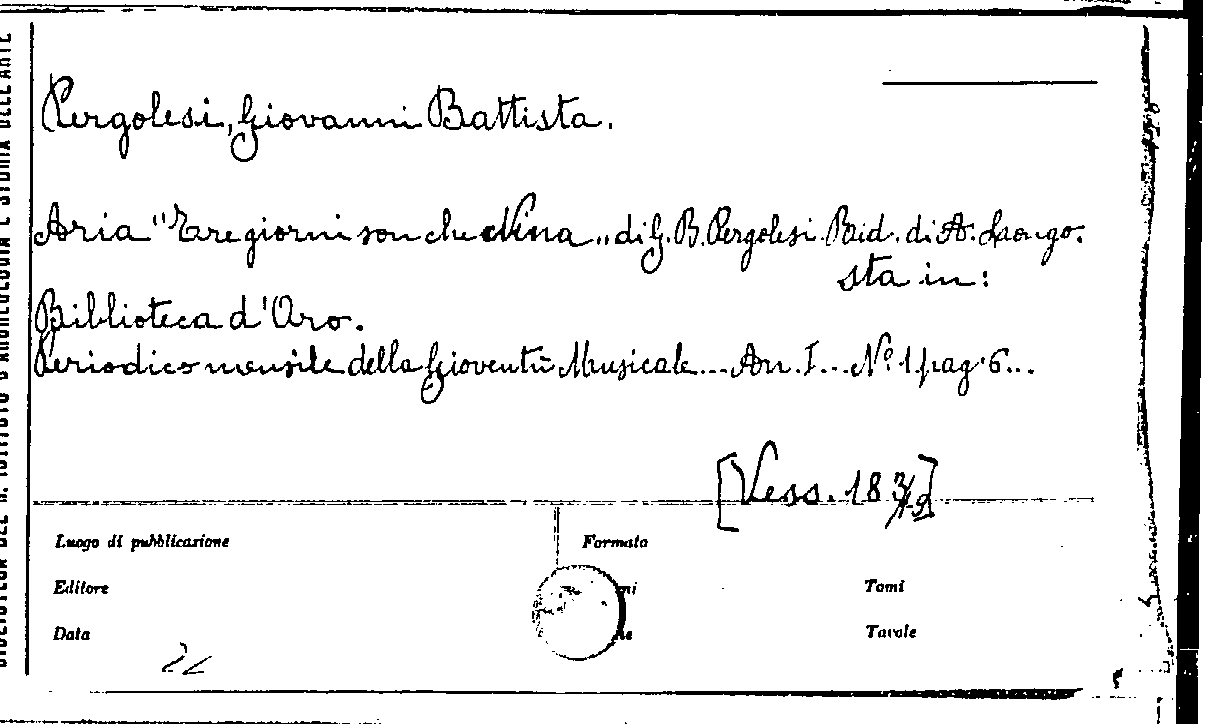 BIBLIOTECA DEL R. ISTITUTO D'ARCHEOLOGIA E STORIA DELL'ARTE
Pergolesi, Giovanni Battista.
Aria "Tre giorni son che Nina„ di G. B. Pergolesi. Rid. di A. Longo.
sta in:
Biblioteca d'Oro.
Periodico mensile della Gioventù Musicale... An. I... Nº 1 pag. 6...
[Vess. 18
Luogo di pubblicazione
Formato
Editore
Tomi
Data
Tavole